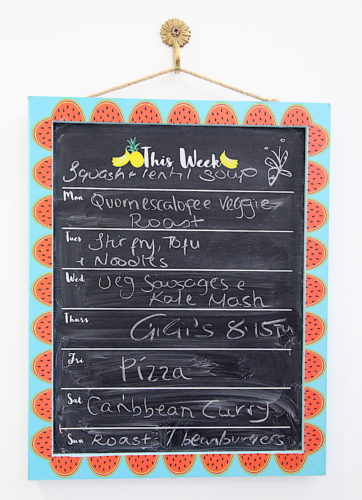 This Week
Squash + lentil Soup
Mon Quornescalopee Veggie
Roast
Tues Stir fry, Tofu
+ Noodles
Wed Veg Sausages +
Kale Mash
Thurs GiGi's 8:15pm
Fri Pizza
Sat Caribbean Curry
Sun Roast / beanburgers